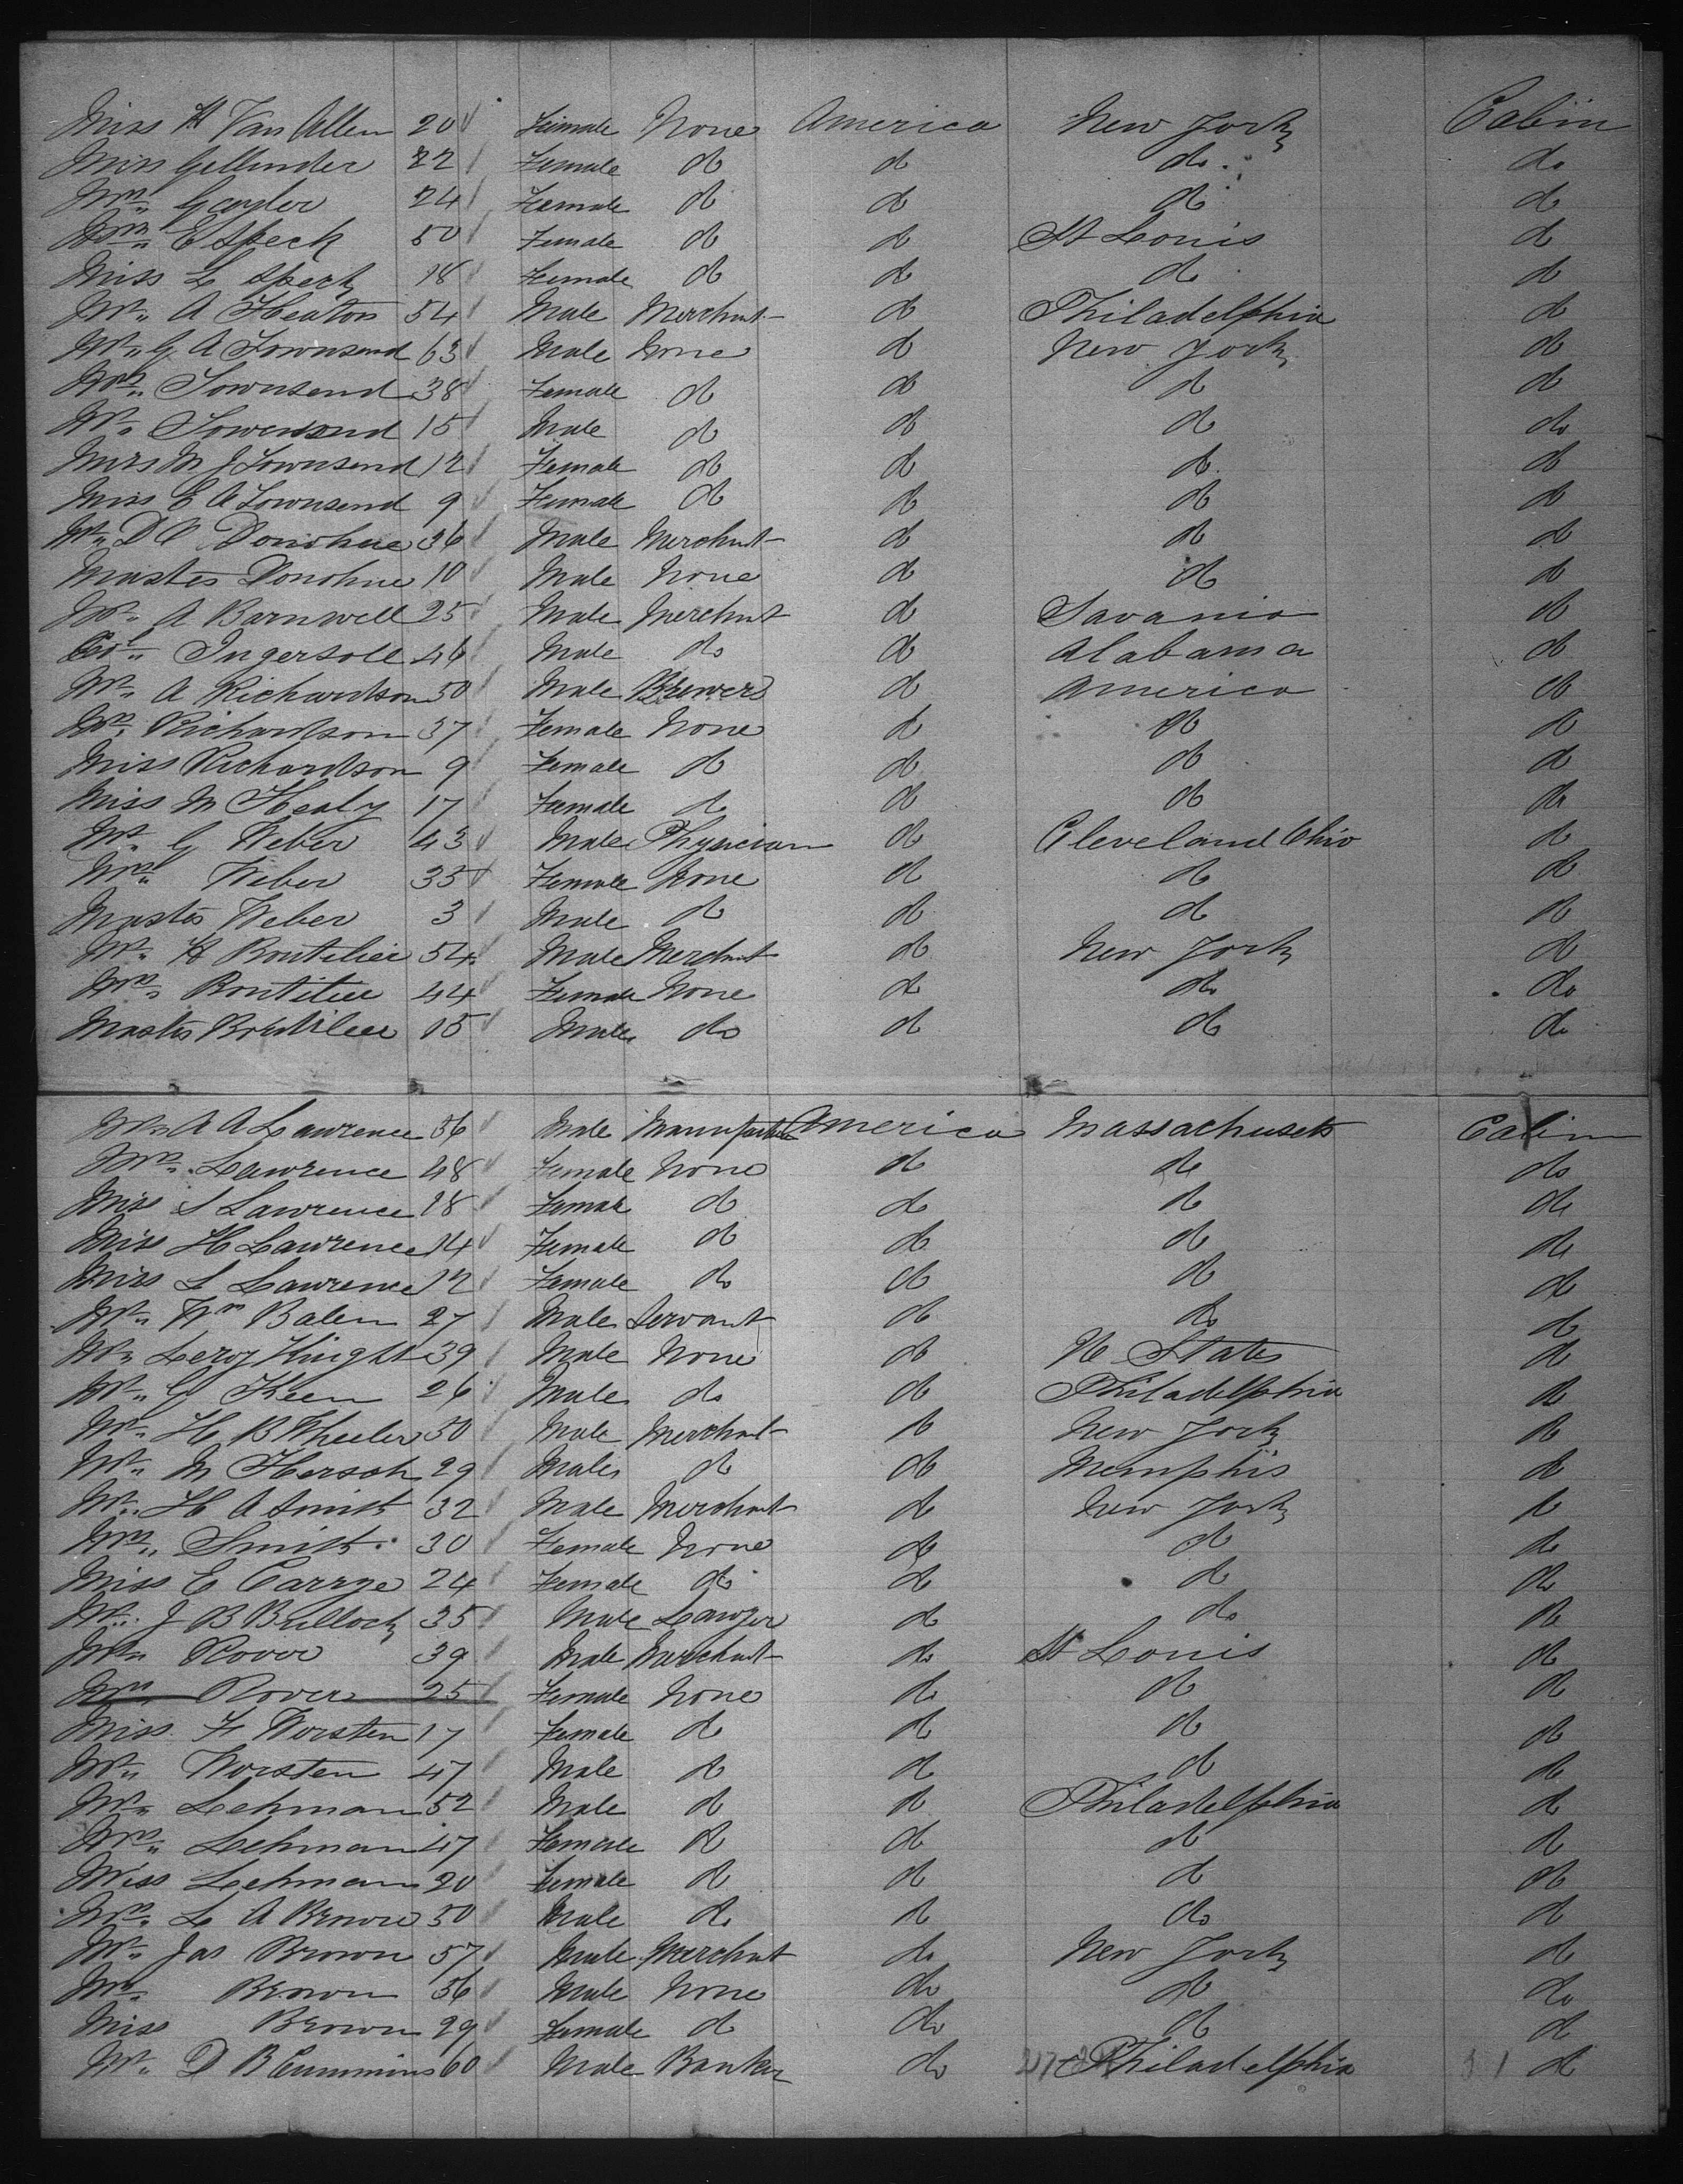 Miss H Van Allen 20 Female None America New York Cabin
Miss Gellunder 22 Female do do do. do
Mrs Gayler 24 Female do do do do
Mrs E Speck 50 Female do do St Louis do
Miss L Speck 18 Female do do do do
Mr A Heaton 54 Male Merchant do Philadelphia do
Mr G A Townsend 63 Male None do New York do
Mrs Townsend 38 Female do do do do
Mr Townsend 15 Male do do do do
Miss M J Townsend 12 Female do do do do
Miss E A Townsend 9 Female do do do do
Mr D C Donohue 36 Male Merchant do do do
Master Donohue 10 Male None do do do
Mr A Barnwell 25 Male Merchant do Savania do
Col Ingersoll 46 Male do do Alabama do
Mr A Richardson 50 Male Brewer do America do
Mrs Richardson 37 Female None do do do
Miss Richardson 9 Female do do do do
Miss M Healy 17 Female do do do do
Mr G Weber 43 Male Physician do Cleveland Ohio do
Mrs Weber 35 Female None do do do
Master Weber 3 Male do do do do
Mr H Boutilier 54 Male Merchant do New York do
Mrs Boutilier 44 Female None do do do
Master Boutilier 15 Male do do do do
Mr A A Lawrence 56 Male America Massachusets Cabin
Mrs Lawrence 48 Female None do do do
Miss S Lawrence 18 Female do do do do
Miss H Lawrence 14 Female do do do do
Miss L Lawrence 12 Female do do do do
Mr Wm Balen 27 Male Servant do do do
Mr Leroy Knight 39 Male None do U States do
Mr G Keen 26 Male do do Philadelphia do
Mr H B Wheeler 30 Male Merchant do New York do
Mr M Hersch 29 Male do do Memphis do
Mr H A Smith 32 Male Merchant do New York do
Mrs Smith 30 Female None do do do
Miss E Carrye 24 Female do do do do
Mr J B Bulloch 35 Male Lawyer do do do
Mr Rover 39 Male Merchant do St Louis do
Mrs Rover 25 Female None do do do
Miss F Worsten 17 Female do do do do
Mr Worsten 47 Male do do do do
Mr Lehman 52 Male do do Philadelphia do
Mrs Lehman 47 Female do do do do
Miss Lehman 20 Female do do do do
L A Brown 50 Male do do do do
Mr Jas Brown 57 Male Merchant do New York do
Brown 56 Male None do do do
Miss Brown 29 Female do do do do
Mr D B Cummins 60 Male Banker do Philadelphia do